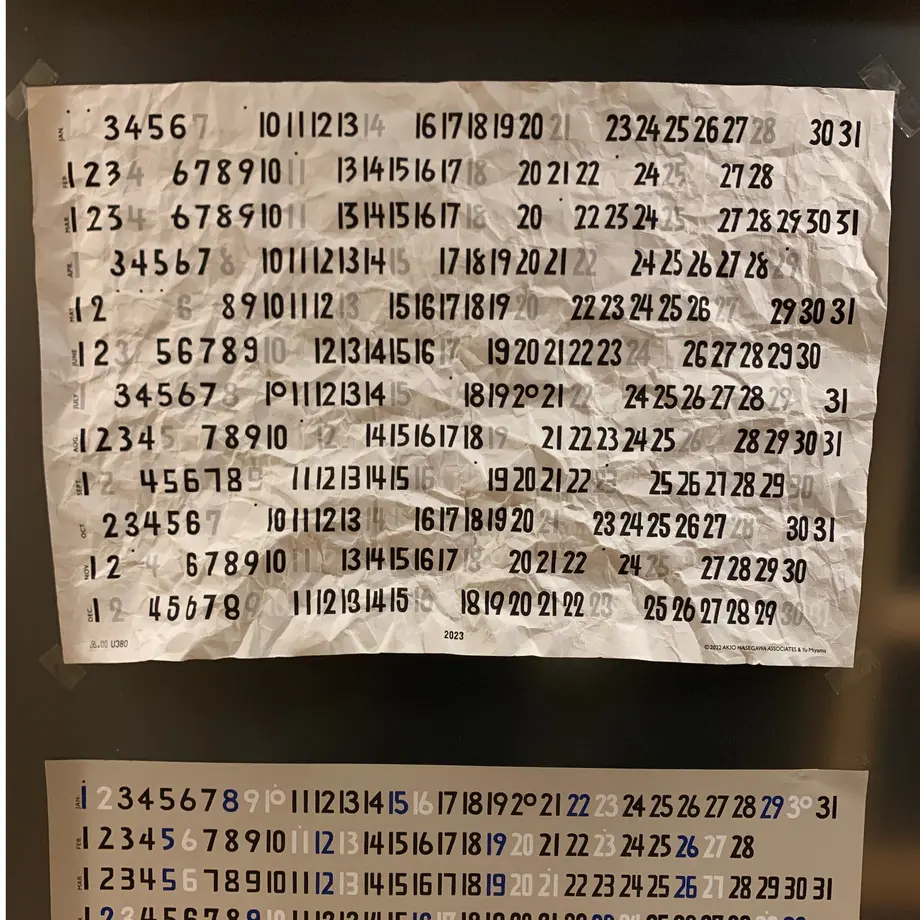 JAN. 3 4 5 6 7 10 11 12 13 14 16 17 18 19 20 21 23 24 25 26 27 28 30 31
FEB. 1 2 3 4 6 7 8 9 10 11 13 14 15 16 17 18 20 21 22 24 25 27 28
MAR. 1 2 3 4 6 7 8 9 10 11 13 14 15 16 17 18 20 22 23 24 25 27 28 29 30 31
APR. 3 4 5 6 7 8 10 11 12 13 14 15 17 18 19 20 21 22 24 25 26 27 28 29
MAY 1 2 6 8 9 10 11 12 13 15 16 17 18 19 20 22 23 24 25 26 27 29 30 31
JUNE 1 2 3 5 6 7 8 9 10 12 13 14 15 16 17 19 20 21 22 23 24 26 27 28 29 30
JULY 3 4 5 6 7 8 10 11 12 13 14 15 18 19 20 21 22 24 25 26 27 28 29 31
AUG. 1 2 3 4 5 7 8 9 10 12 14 15 16 17 18 19 21 22 23 24 25 26 28 29 30 31
SEPT. 1 2 4 5 6 7 8 9 11 12 13 14 15 16 19 20 21 22 23 25 26 27 28 29 30
OCT. 2 3 4 5 6 7 10 11 12 13 14 16 17 18 19 20 21 23 24 25 26 27 28 30 31
NOV. 1 2 4 6 7 8 9 10 11 13 14 15 16 17 18 20 21 22 24 25 27 28 29 30
DEC. 1 2 4 5 6 7 8 9 11 12 13 14 15 16 18 19 20 21 22 23 25 26 27 28 29 30
U380 2023 ©2022 AKIO HASEGAWA ASSOCIATES & Yu Miyama
JAN. 1 2 3 4 5 6 7 8 9 10 11 12 13 14 15 16 17 18 19 20 21 22 23 24 25 26 27 28 29 30 31
FEB. 1 2 3 4 5 6 7 8 9 10 11 12 13 14 15 16 17 18 19 20 21 22 23 24 25 26 27 28
MAR. 1 2 3 4 5 6 7 8 9 10 11 12 13 14 15 16 17 18 19 20 21 22 23 24 25 26 27 28 29 30 31